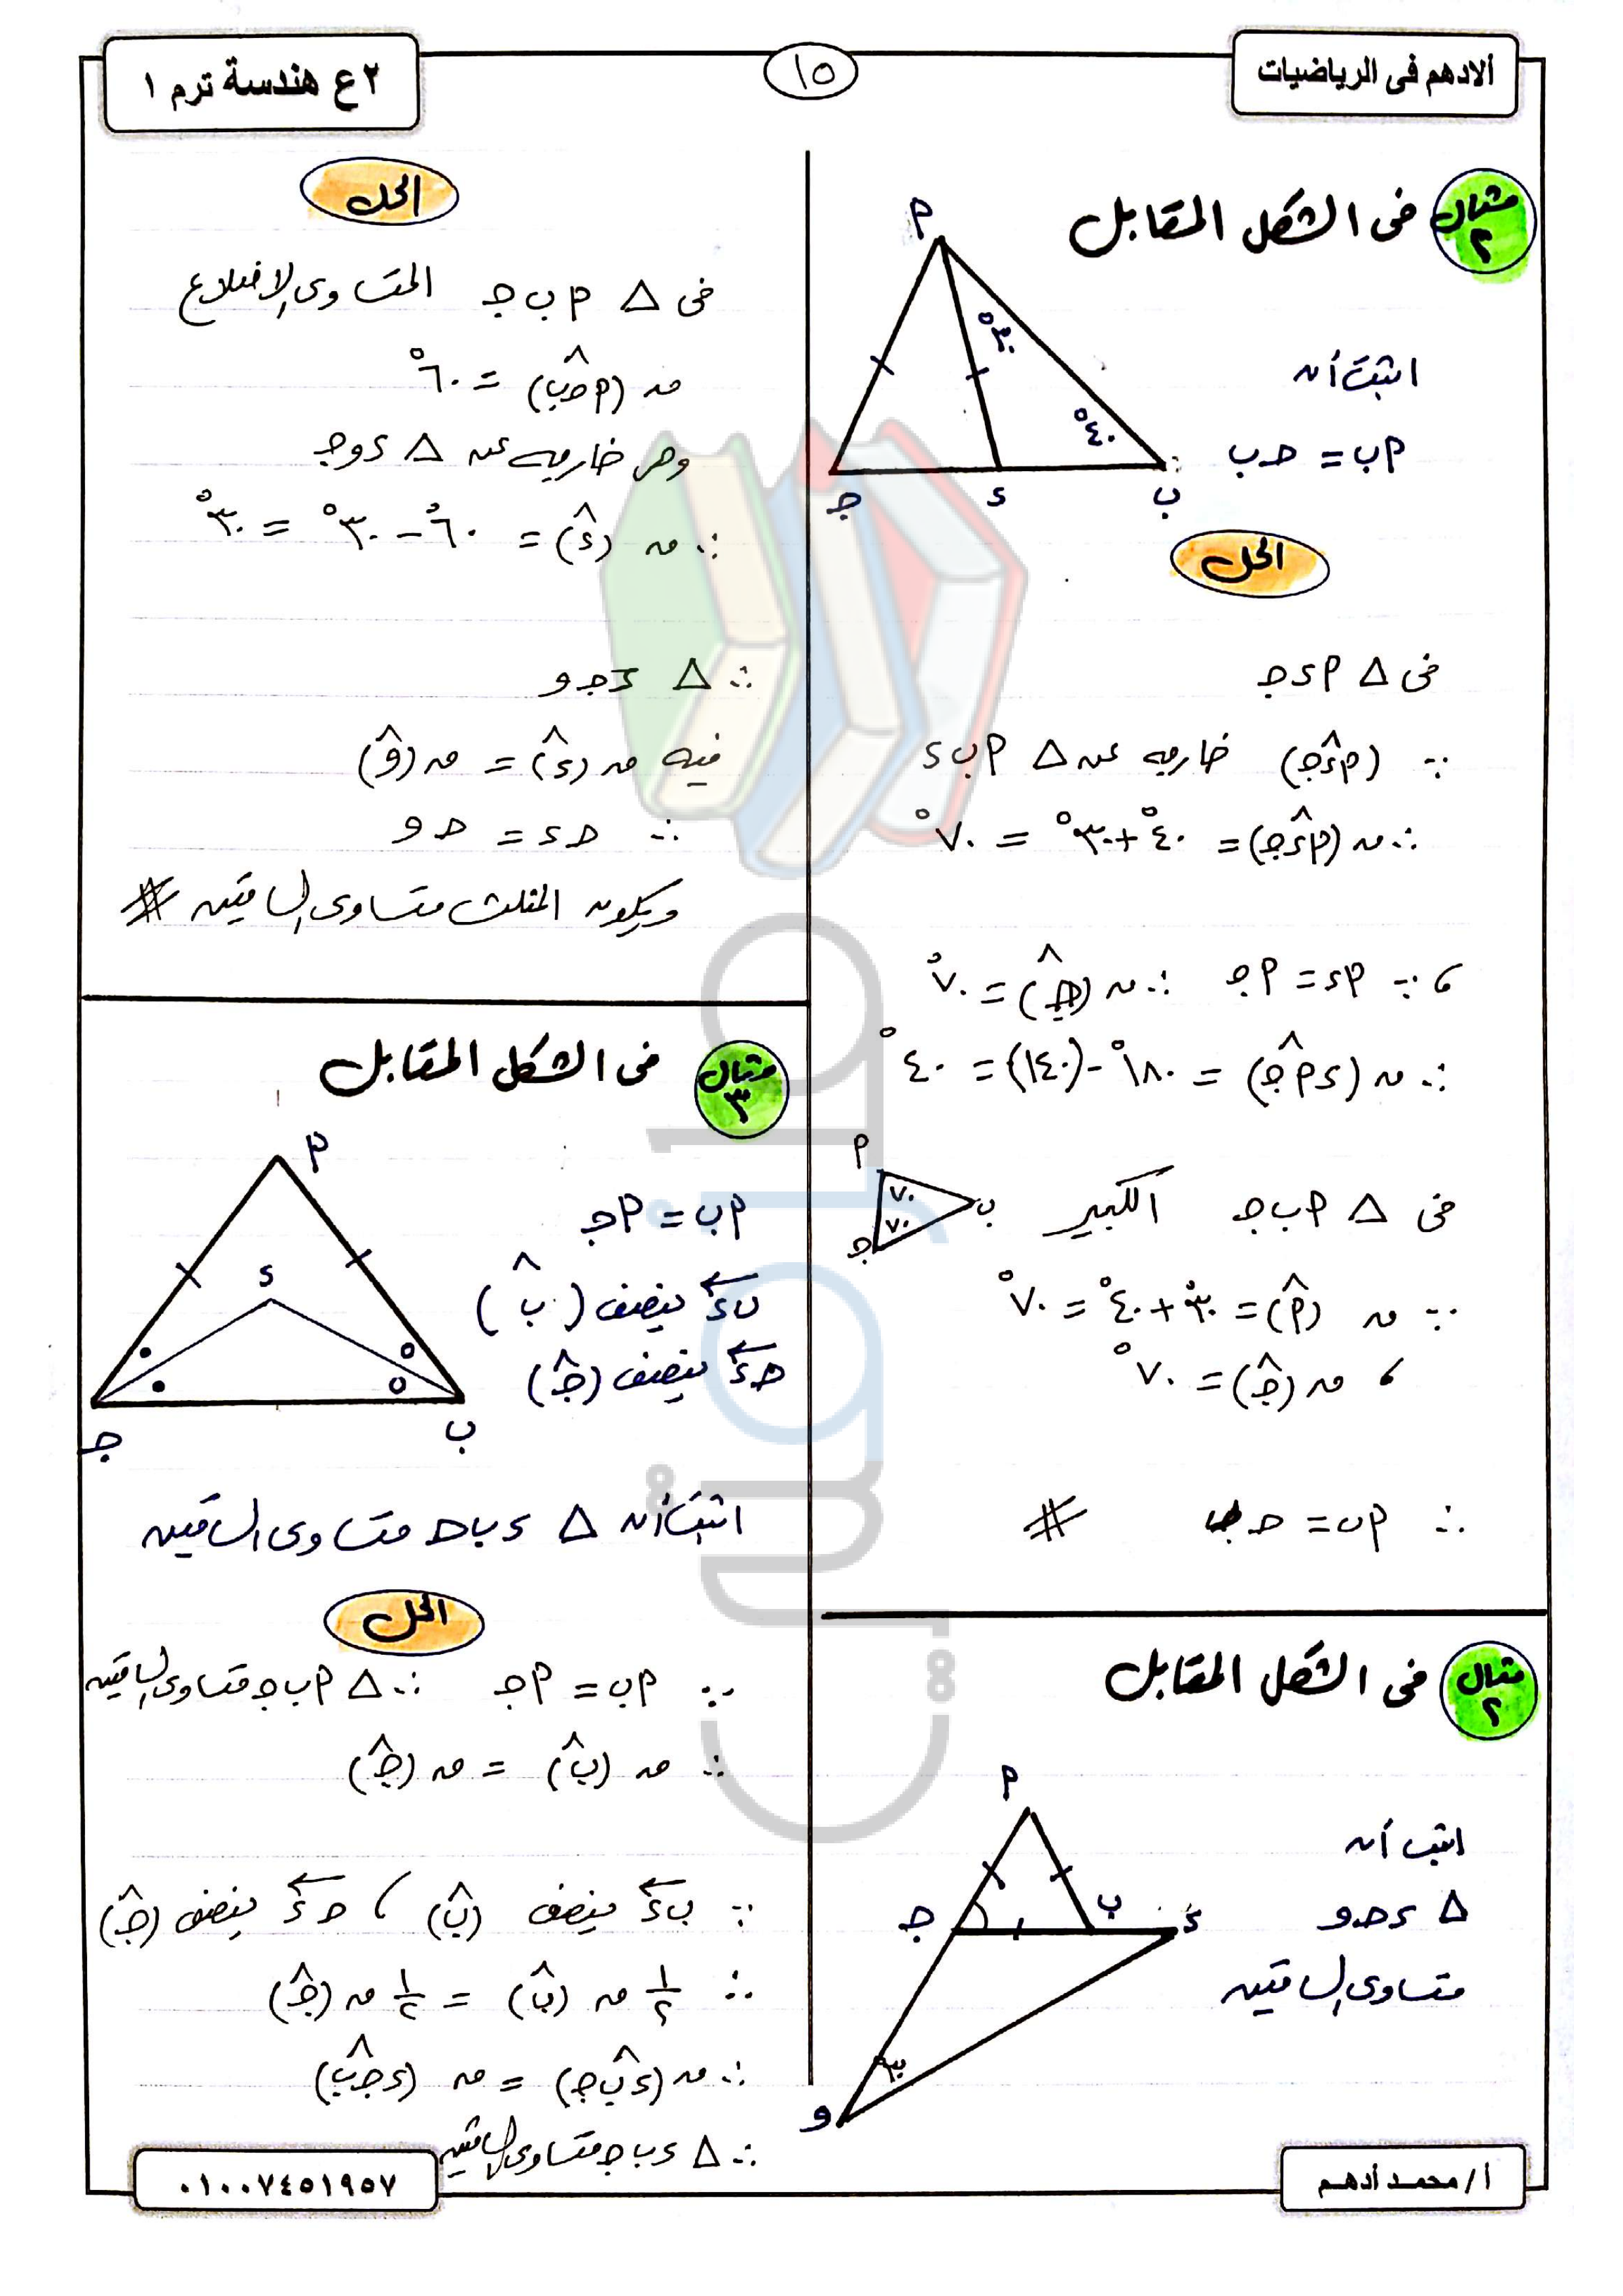 ألادهم فى الرياضيات
١٥
٢ع هندسة ترم ١
مثال ٢
فى الشكل المقابل
اثبت أن
أب = جـب
أ
٣٠°
٤٠°
جـ
د
ب
الحل
فى △ أدجـ
∵ (أد̂جـ) خارجه عن △ أب د
∴ ن (أد̂جـ) = ٤٠° + ٣٠° = ٧٠°
، ∵ أد = أجـ ∴ ن (جـ̂) = ٧٠°
∴ ن (دأ̂جـ) = ١٨٠° - (١٤٠) = ٤٠°
فى △ أب جـ الكبير
أ
٧٠
٧٠
ب
جـ
∵ ن (أ̂) = ٣٠° + ٤٠° = ٧٠°
، ن (جـ̂) = ٧٠°
∴ أب = جـب #
مثال ٢
فى الشكل المقابل
اثبت أن
△ دجـو
متساوى الساقين
أ
جـ
ب
د
٣٠
و
الحل
فى △ أب جـ المتساوى الاضلاع
ن (أجـ̂ب) = ٦٠°
وهى خارجه عن △ دوجـ
∴ ن (د̂) = ٦٠° - ٣٠° = ٣٠°
∴ △ دجـو
فيه ن (د̂) = ن (و̂)
∴ جـد = جـو
ويكون المثلث متساوى الساقين #
مثال ٣
فى الشكل المقابل
أب = أجـ
بد ينصف (ب̂)
جـد ينصف (جـ̂)
أ
د
جـ
ب
اثبت أن △ دب جـ متساوى الساقين
الحل
∵ أب = أجـ ∴ △ أب جـ متساوى الساقين
∴ ن (ب̂) = ن (جـ̂)
∵ بد ينصف (ب̂) ، جـد ينصف (جـ̂)
∴ ١/٢ ن (ب̂) = ١/٢ ن (جـ̂)
∴ ن (دب̂جـ) = ن (دجـ̂ب)
∴ △ دب جـ متساوى الساقين
أ/ محمد أدهم
٠١٠٠٧٤٥١٩٥٧